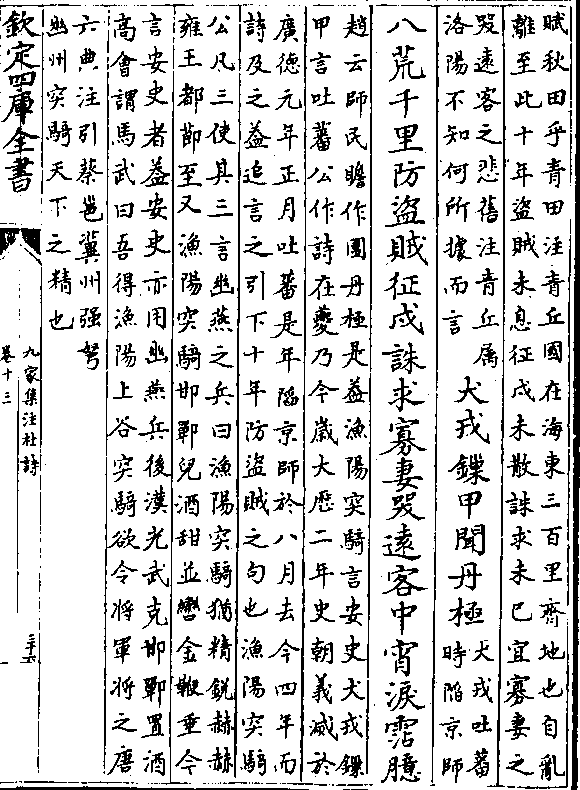 賦秋田乎青田注青丘國在海東三百里齊地也自亂
離至此十年盜賊未息征戍未散誅求未已宜寡妻之
哭遠客之悲舊注青丘属
洛陽不知何所據而言
犬戎鏁甲聞丹極
犬戎吐蕃
時陷京師
八荒千里防盜賊征戍誅求寡妻哭遠客中宵淚霑臆
趙云師民瞻作圍丹極是益漁陽突騎言安史犬戎鏁
甲言吐蕃公作詩在夔乃今歳大歴二年史朝義滅於
廣德元年正月吐蕃是年陷京師於八月去今四年而
詩及之益追言之引下十年防盜賊之句也漁陽突騎
公凡三使其三言幽燕之兵曰漁陽突騎猶精銳赫赫
雍王都節至又漁陽突騎邯鄲兒酒甜並轡金鞭垂今
言安史者益安史亦用幽燕兵後漢光武克邯鄲置酒
高會謂馬武曰吾得漁陽上谷突騎欲令將軍將之唐
六典注引蔡邕冀州强弩
幽州突騎天下之精也
欽定四庫全書
九家集注杜詩
卷十三
三十六